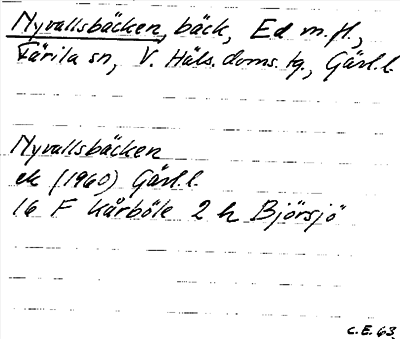 Nyvallsbäcken, bäck, Ed m. fl.,
Färila sn, V. Häls. doms. tg., Gävl. l.
Nyvallsbäcken
ek (1960) Gävl. l.
16 F Kårböle 2 h Björsjö
C.E. 63.